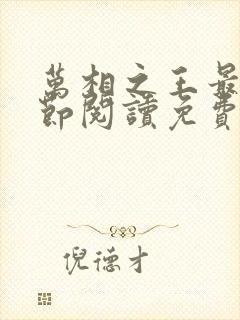 萬相之王最
節閱讀免費
倪德才